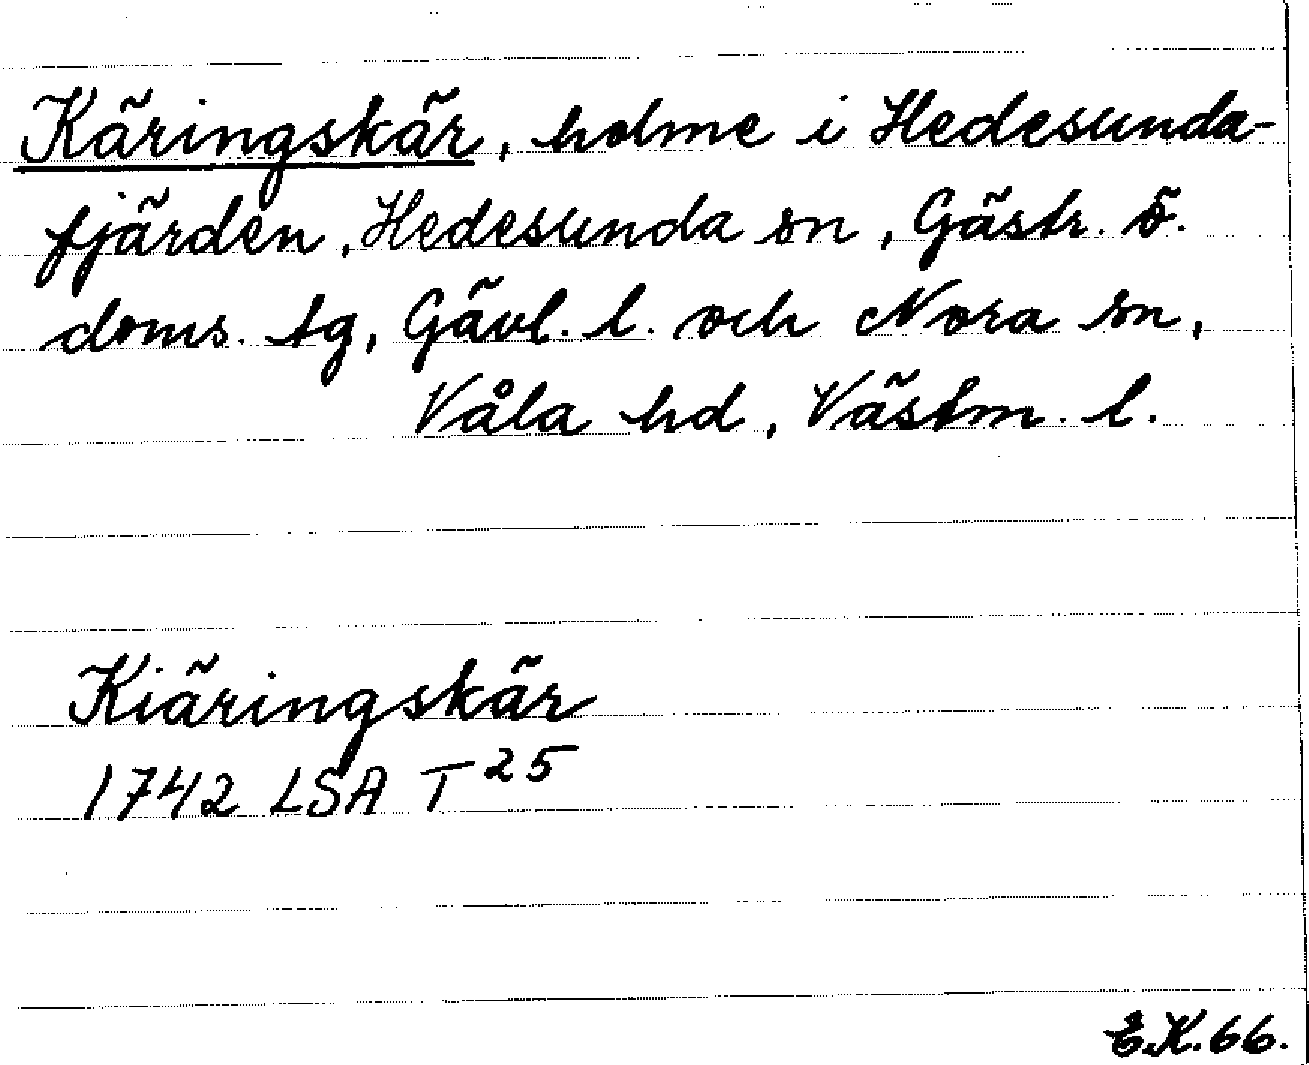 Käringskär, holme i Hedesunda-
fjärden, Hedesunda sn, Gästr. ö.
doms. tg, Gävl. l. och Nora sn,
Våla hd, Västm. l.
Kiäringskär
1742 LSA T 25
E.K. 66.